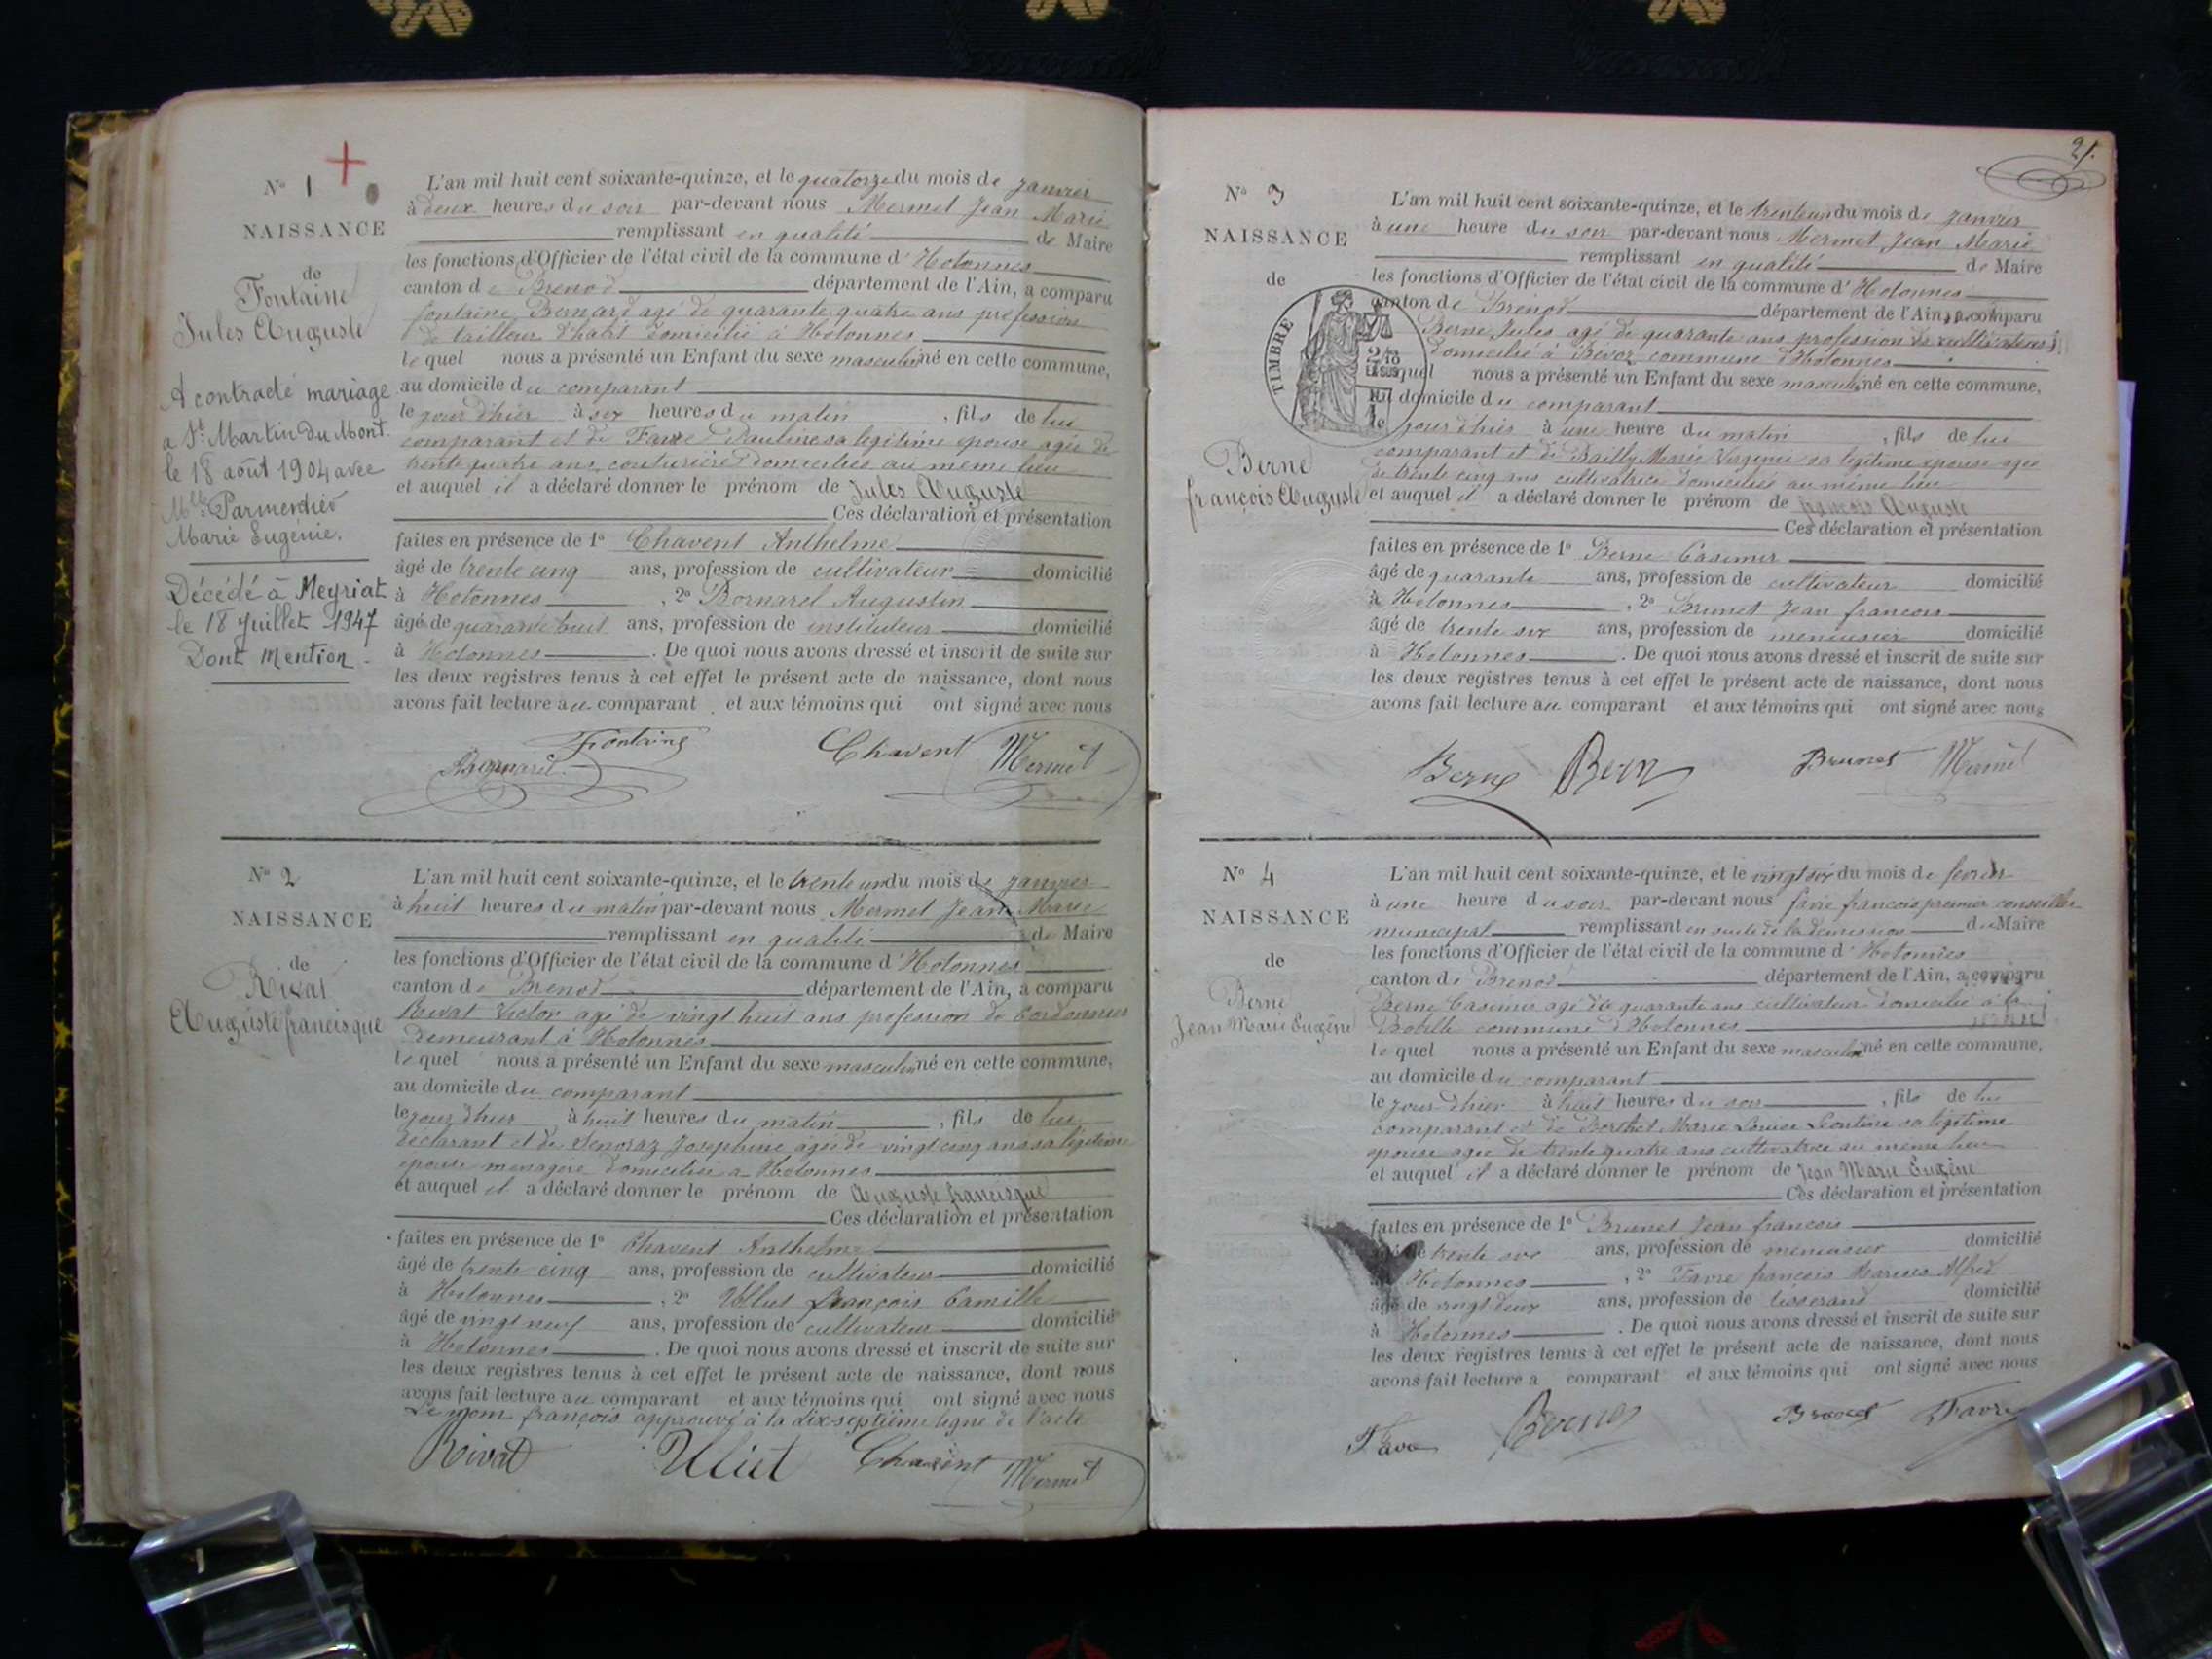 N° 1
NAISSANCE
de
Fontaine
Jules Auguste
A contracté mariage
a St Martin du Mont
le 18 août 1904 avec
Mlle Parmentier
Marie Eugénie.
Décédé à Meyriat
le 18 Juillet 1947
Dont Mention
L'an mil huit cent soixante-quinze, et le quatorze du mois de janvier
à deux heures du soir par-devant nous Mermet Jean Marie
remplissant en qualité de Maire
les fonctions d'Officier de l'état civil de la commune d'Hotonnes
canton de Brenod département de l'Ain, a comparu
fontaine Bernard agé de quarante quatre ans profession
de tailleur d'habit domicilié à Hotonnes
lequel nous a présenté un Enfant du sexe masculin né en cette commune,
au domicile du comparant
le jour d'hier à six heures du matin, fils de lui
comparant et de Favre Pauline sa legitime epouse agée de
trente quatre ans couturière domiciliée au meme lieu
et auquel il a déclaré donner le prénom de Jules Auguste
Ces déclaration et présentation
faites en présence de 1° Chavent Anthelme
âgé de trente cinq ans, profession de cultivateur domicilié
à Hotonnes, 2° Bornarel Augustin
âgé de quarante huit ans, profession de instituteur domicilié
à Hotonnes. De quoi nous avons dressé et inscrit de suite sur
les deux registres tenus à cet effet le présent acte de naissance, dont nous
avons fait lecture au comparant et aux témoins qui ont signé avec nous
Fontaine
Bornarel Chavent Mermet
N° 2
NAISSANCE
de
Rivat
Auguste francisque
L'an mil huit cent soixante-quinze, et le trente un du mois de janvier
à huit heures du matin par-devant nous Mermet Jean Marie
remplissant en qualité de Maire
les fonctions d'Officier de l'état civil de la commune d'Hotonnes
canton de Brenod département de l'Ain, a comparu
Rivat Victor agé de vingt huit ans profession de Cordonnier
demeurant à Hotonnes
lequel nous a présenté un Enfant du sexe masculin né en cette commune,
au domicile du comparant
le jour d'hier à huit heures du matin, fils de lui
déclarant et de Senoraz Josephine agée de vingt cinq ans sa légitime
epouse menagere domiciliée a Hotonnes
et auquel il a déclaré donner le prénom de Auguste francisque
Ces déclaration et présentation
faites en présence de 1° Chavent Anthelme
âgé de trente cinq ans, profession de cultivateur domicilié
à Hotonnes, 2° Ulliet François Camille
âgé de vingt neuf ans, profession de cultivateur domicilié
à Hotonnes. De quoi nous avons dressé et inscrit de suite sur
les deux registres tenus à cet effet le présent acte de naissance, dont nous
avons fait lecture au comparant et aux témoins qui ont signé avec nous
Le nom françois approuvé à la dix-septième ligne de l'acte
Rivat Ulliet Chavent Mermet
2.
N° 3
NAISSANCE
de
TIMBRE
Berne
françois Auguste
L'an mil huit cent soixante-quinze, et le trente un du mois de janvier
à une heure du soir par-devant nous Mermet Jean Marie
remplissant en qualité de Maire
les fonctions d'Officier de l'état civil de la commune d'Hotonnes
canton de Brénod département de l'Ain, a comparu
Berne Jules agé de quarante ans profession de cultivateur
domicilié à Bévoz commune d'Hotonnes
lequel nous a présenté un Enfant du sexe masculin né en cette commune,
au domicile du comparant
le jour d'hier à une heure du matin, fils de lui
comparant et de Bailly Marie Virginie sa legitime epouse agée
de trente cinq ans cultivatrice domiciliée au même lieu
et auquel il a déclaré donner le prénom de françois Auguste
Ces déclaration et présentation
faites en présence de 1° Berne Casimir
âgé de quarante ans, profession de cultivateur domicilié
à Hotonnes, 2° Brunet Jean francois
âgé de trente six ans, profession de menuisier domicilié
à Hotonnes. De quoi nous avons dressé et inscrit de suite sur
les deux registres tenus à cet effet le présent acte de naissance, dont nous
avons fait lecture au comparant et aux témoins qui ont signé avec nous
Berne Bern Brunet Mermet
N° 4
NAISSANCE
de
Berne
Jean Marie Eugène
L'an mil huit cent soixante-quinze, et le vingt six du mois de fevrier
à une heure du soir par-devant nous favre francois premier conseiller
municipal remplissant en suite de la demission du Maire
les fonctions d'Officier de l'état civil de la commune d'Hotonnes
canton de Brenod département de l'Ain, a comparu
Berne Casimir agé de quarante ans cultivateur domicilié à la
commune d'Hotonnes
lequel nous a présenté un Enfant du sexe masculin né en cette commune,
au domicile du comparant
le jour d'hier à huit heures du soir, fils de lui
comparant et de Berthet Marie Louise Leontine sa legitime
epouse agée de trente quatre ans cultivatrice au meme lieu
et auquel il a déclaré donner le prénom de Jean Marie Eugène
Ces déclaration et présentation
faites en présence de 1° Brunet Jean francois
âgé de trente six ans, profession de menuisier domicilié
à Hotonnes, 2° Favre francois Marius Alfred
âgé de vingt deux ans, profession de tisserand domicilié
à Hotonnes. De quoi nous avons dressé et inscrit de suite sur
les deux registres tenus à cet effet le présent acte de naissance, dont nous
avons fait lecture a comparant et aux témoins qui ont signé avec nous
Favre Berne Brunet Favre